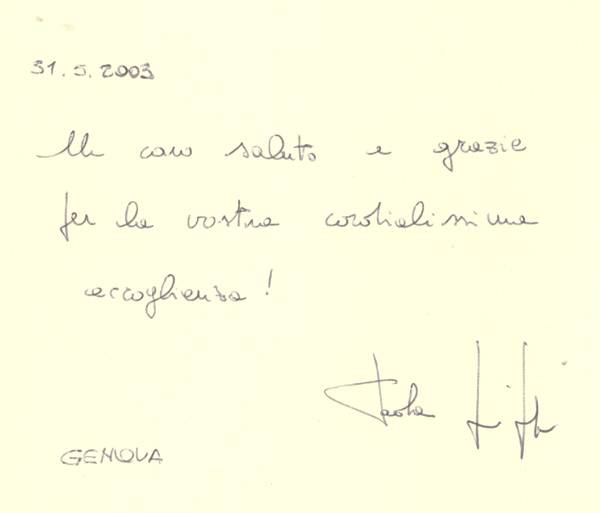 31.5.2003
Un caro saluto e grazie
per la vostra cordialissima
accoglienza!
Paola
GENOVA